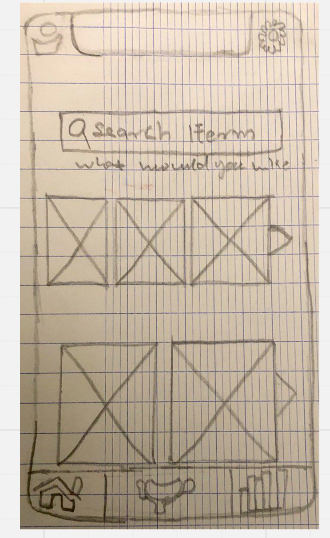 search Iterm
what would you like